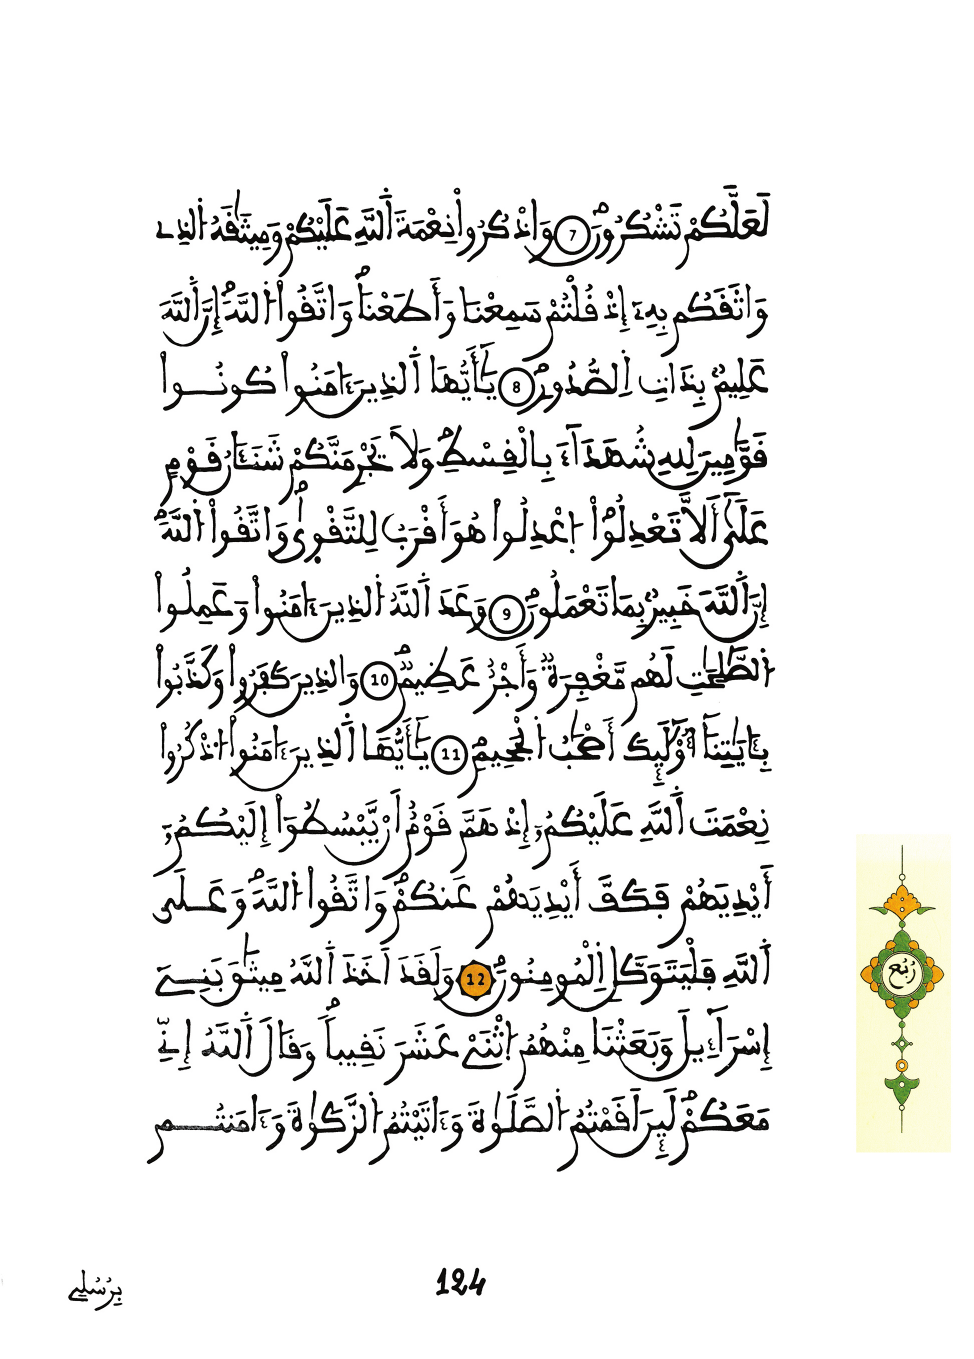 لَعَلَّكُمْ تَشْكُرُونَ 7 وَاذْكُرُواْ نِعْمَةَ اَ۬للَّهِ عَلَيْكُمْ وَمِيثَٰقَهُ اُ۬لذِے
وَاثَقَكُم بِهِۦٓ إِذْ قُلْتُمْ سَمِعْنَا وَأَطَعْنَاۖ وَاتَّقُواْ اُ۬للَّهَۖ إِنَّ اَ۬للَّهَ
عَلِيمُۢ بِذَاتِ اِ۬لصُّدُورِۖ 8 يَٰٓأَيُّهَا اَ۬لذِينَ ءَامَنُواْ كُونُواْ
قَوَّٰمِينَ لِلهِ شُهَدَآءَ بِالْقِسْطِۖ وَلَا يَجْرِمَنَّكُمْ شَنَـَٔانُ قَوْمٍ
عَلَىٰٓ أَلَّا تَعْدِلُواْۖ اُ۪عْدِلُواْ هُوَ أَقْرَبُ لِلتَّقْو۪يٰۖ وَاتَّقُواْ اُ۬للَّهَۖ
إِنَّ اَ۬للَّهَ خَبِيرُۢ بِمَا تَعْمَلُونَۖ 9 وَعَدَ اَ۬للَّهُ اُ۬لذِينَ ءَامَنُواْ وَعَمِلُواْ
اُ۬لصَّٰلِحَٰتِ لَهُم مَّغْفِرَةٞ وَأَجْرٌ عَظِيمٞۖ 10 وَالذِينَ كَفَرُواْ وَكَذَّبُواْ
بِـَٔايَٰتِنَآ أُوْلَٰٓئِكَ أَصْحَٰبُ اُ۬لْجَحِيمِۖ 11 يَٰٓأَيُّهَا اَ۬لذِينَ ءَامَنُواْ اُ۟ذْكُرُواْ
نِعْمَتَ اَ۬للَّهِ عَلَيْكُمُۥٓ إِذْ هَمَّ قَوْمٌ أَنْ يَّبْسُطُوٓاْ إِلَيْكُمُۥٓ
أَيْدِيَهُمْ فَكَفَّ أَيْدِيَهُمْ عَنكُمْۖ وَاتَّقُواْ اُ۬للَّهَۖ وَعَلَى
اَ۬للَّهِ فَلْيَتَوَكَّلِ اِ۬لْمُومِنُونَۖ 12 وَلَقَدَ اَخَذَ اَ۬للَّهُ مِيثَٰقَ بَنِےٓ
إِسْرَآءِيلَ وَبَعَثْنَا مِنْهُمُ اُ۪ثْنَےْ عَشَرَ نَقِيباٗۖ وَقَالَ اَ۬للَّهُ إِنِّے
مَعَكُمْۖ لَئِنَ اَقَمْتُمُ اُ۬لصَّلَوٰةَ وَءَاتَيْتُمُ اُ۬لزَّكَوٰةَ وَءَامَنتُم
رُبُع
بِرُسُلِے
124